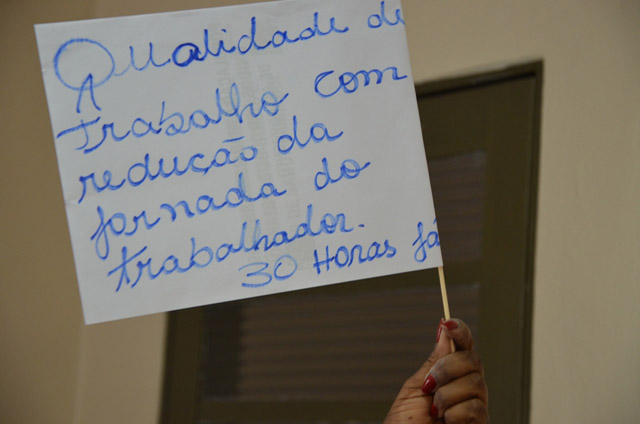 Qualidade de
trabalho com
redução da
jornada do
trabalhador.
30 Horas já